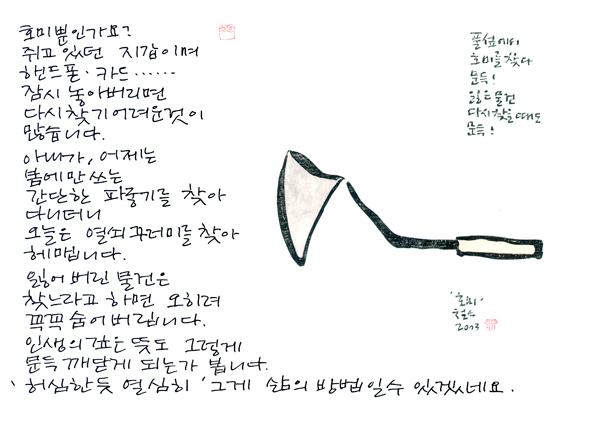 호미뿐인가요?
쥐고 있던 지갑이며
핸드폰·카드……
잠시 놓아버리면
다시 찾기 어려운것이
많습니다.
아내가, 어제는
봄에만 쓰는
간단한 파종기를 찾아
다니더니
오늘은 열쇠꾸러미를 찾아
헤맵니다.
잃어버린 물건은
찾느라고 하면 오히려
꼭꼭 숨어버립니다.
인생의 깊은 뜻도 그렇게
문득 깨닫게 되는가 봅니다.
'허심한듯 열심히' 그게 삶의 방법일수 있겠네요.
풀섶에서
호미를 찾다
문득!
잃은 물건
다시 찾을 때도
문득!
'호미'
철수
2003